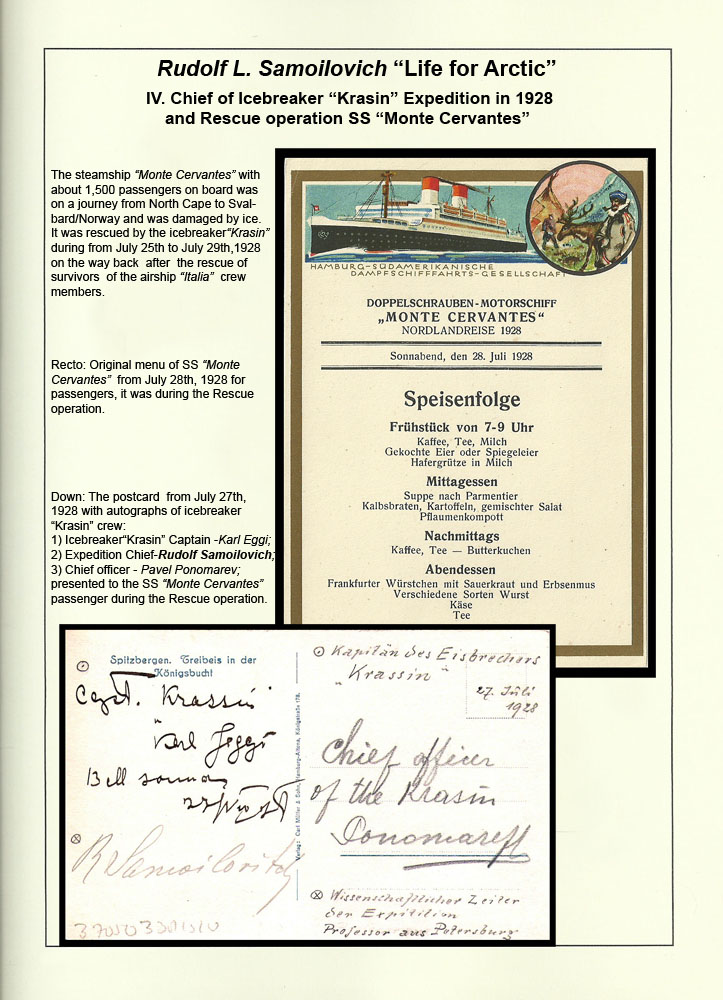 Rudolf L. Samoilovich “Life for Arctic”
IV. Chief of Icebreaker “Krasin” Expedition in 1928
and Rescue operation SS “Monte Cervantes”
The steamship “Monte Cervantes” with
about 1,500 passengers on board was
on a journey from North Cape to Sval-
bard/Norway and was damaged by ice.
It was rescued by the icebreaker“Krasin”
during from July 25th to July 29th,1928
on the way back after the rescue of
survivors of the airship “Italia” crew
members.
Recto: Original menu of SS “Monte
Cervantes” from July 28th, 1928 for
passengers, it was during the Rescue
operation.
Down: The postcard from July 27th,
1928 with autographs of icebreaker
“Krasin” crew:
1) Icebreaker“Krasin” Captain -Karl Eggi;
2) Expedition Chief-Rudolf Samoilovich;
3) Chief officer - Pavel Ponomarev;
presented to the SS “Monte Cervantes”
passenger during the Rescue operation.
HAMBURG-SÜDAMERIKANISCHE
DAMPFSCHIFFFAHRTS-GESELLSCHAFT
DOPPELSCHRAUBEN-MOTORSCHIFF
„MONTE CERVANTES“
NORDLANDREISE 1928
Sonnabend, den 28. Juli 1928
Speisenfolge
Frühstück von 7-9 Uhr
Kaffee, Tee, Milch
Gekochte Eier oder Spiegeleier
Hafergrütze in Milch
Mittagessen
Suppe nach Parmentier
Kalbsbraten, Kartoffeln, gemischter Salat
Pflaumenkompott
Nachmittags
Kaffee, Tee — Butterkuchen
Abendessen
Frankfurter Würstchen mit Sauerkraut und Erbsenmus
Verschiedene Sorten Wurst
Käse
Tee
Spitzbergen. Treibeis in der
Königsbucht
Capt. Krassin
Karl Jeggi
Bell sound
R Samoilovitch
Verlag: Carl Müller & Sohn, Hamburg-Altona, Königstraße 178.
Kapitän des Eisbrechers
„Krassin“
27. Juli
1928
Chief officer
of the Krasin
Ponomareff
Wissenschaftlicher Leiter
der Expitition
Professor aus Petersburg